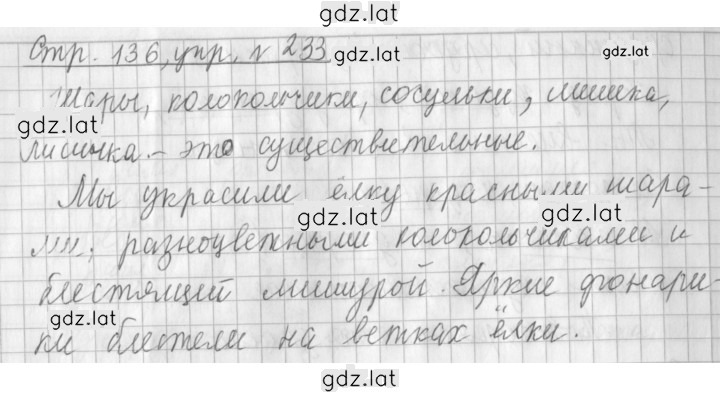 gdz.lat
Стр. 136, упр. № 233
gdz.lat
Шары, колокольчики, сосульки, мишка,
gdz.lat
лисичка - это существительные.
Мы украсили ёлку красными шара-
gdz.lat
gdz.lat
ми, разноцветными колокольчиками и
блестящий мишурой. Яркие фонари-
gdz.lat
ки блестели на ветках ёлки.
gdz.lat